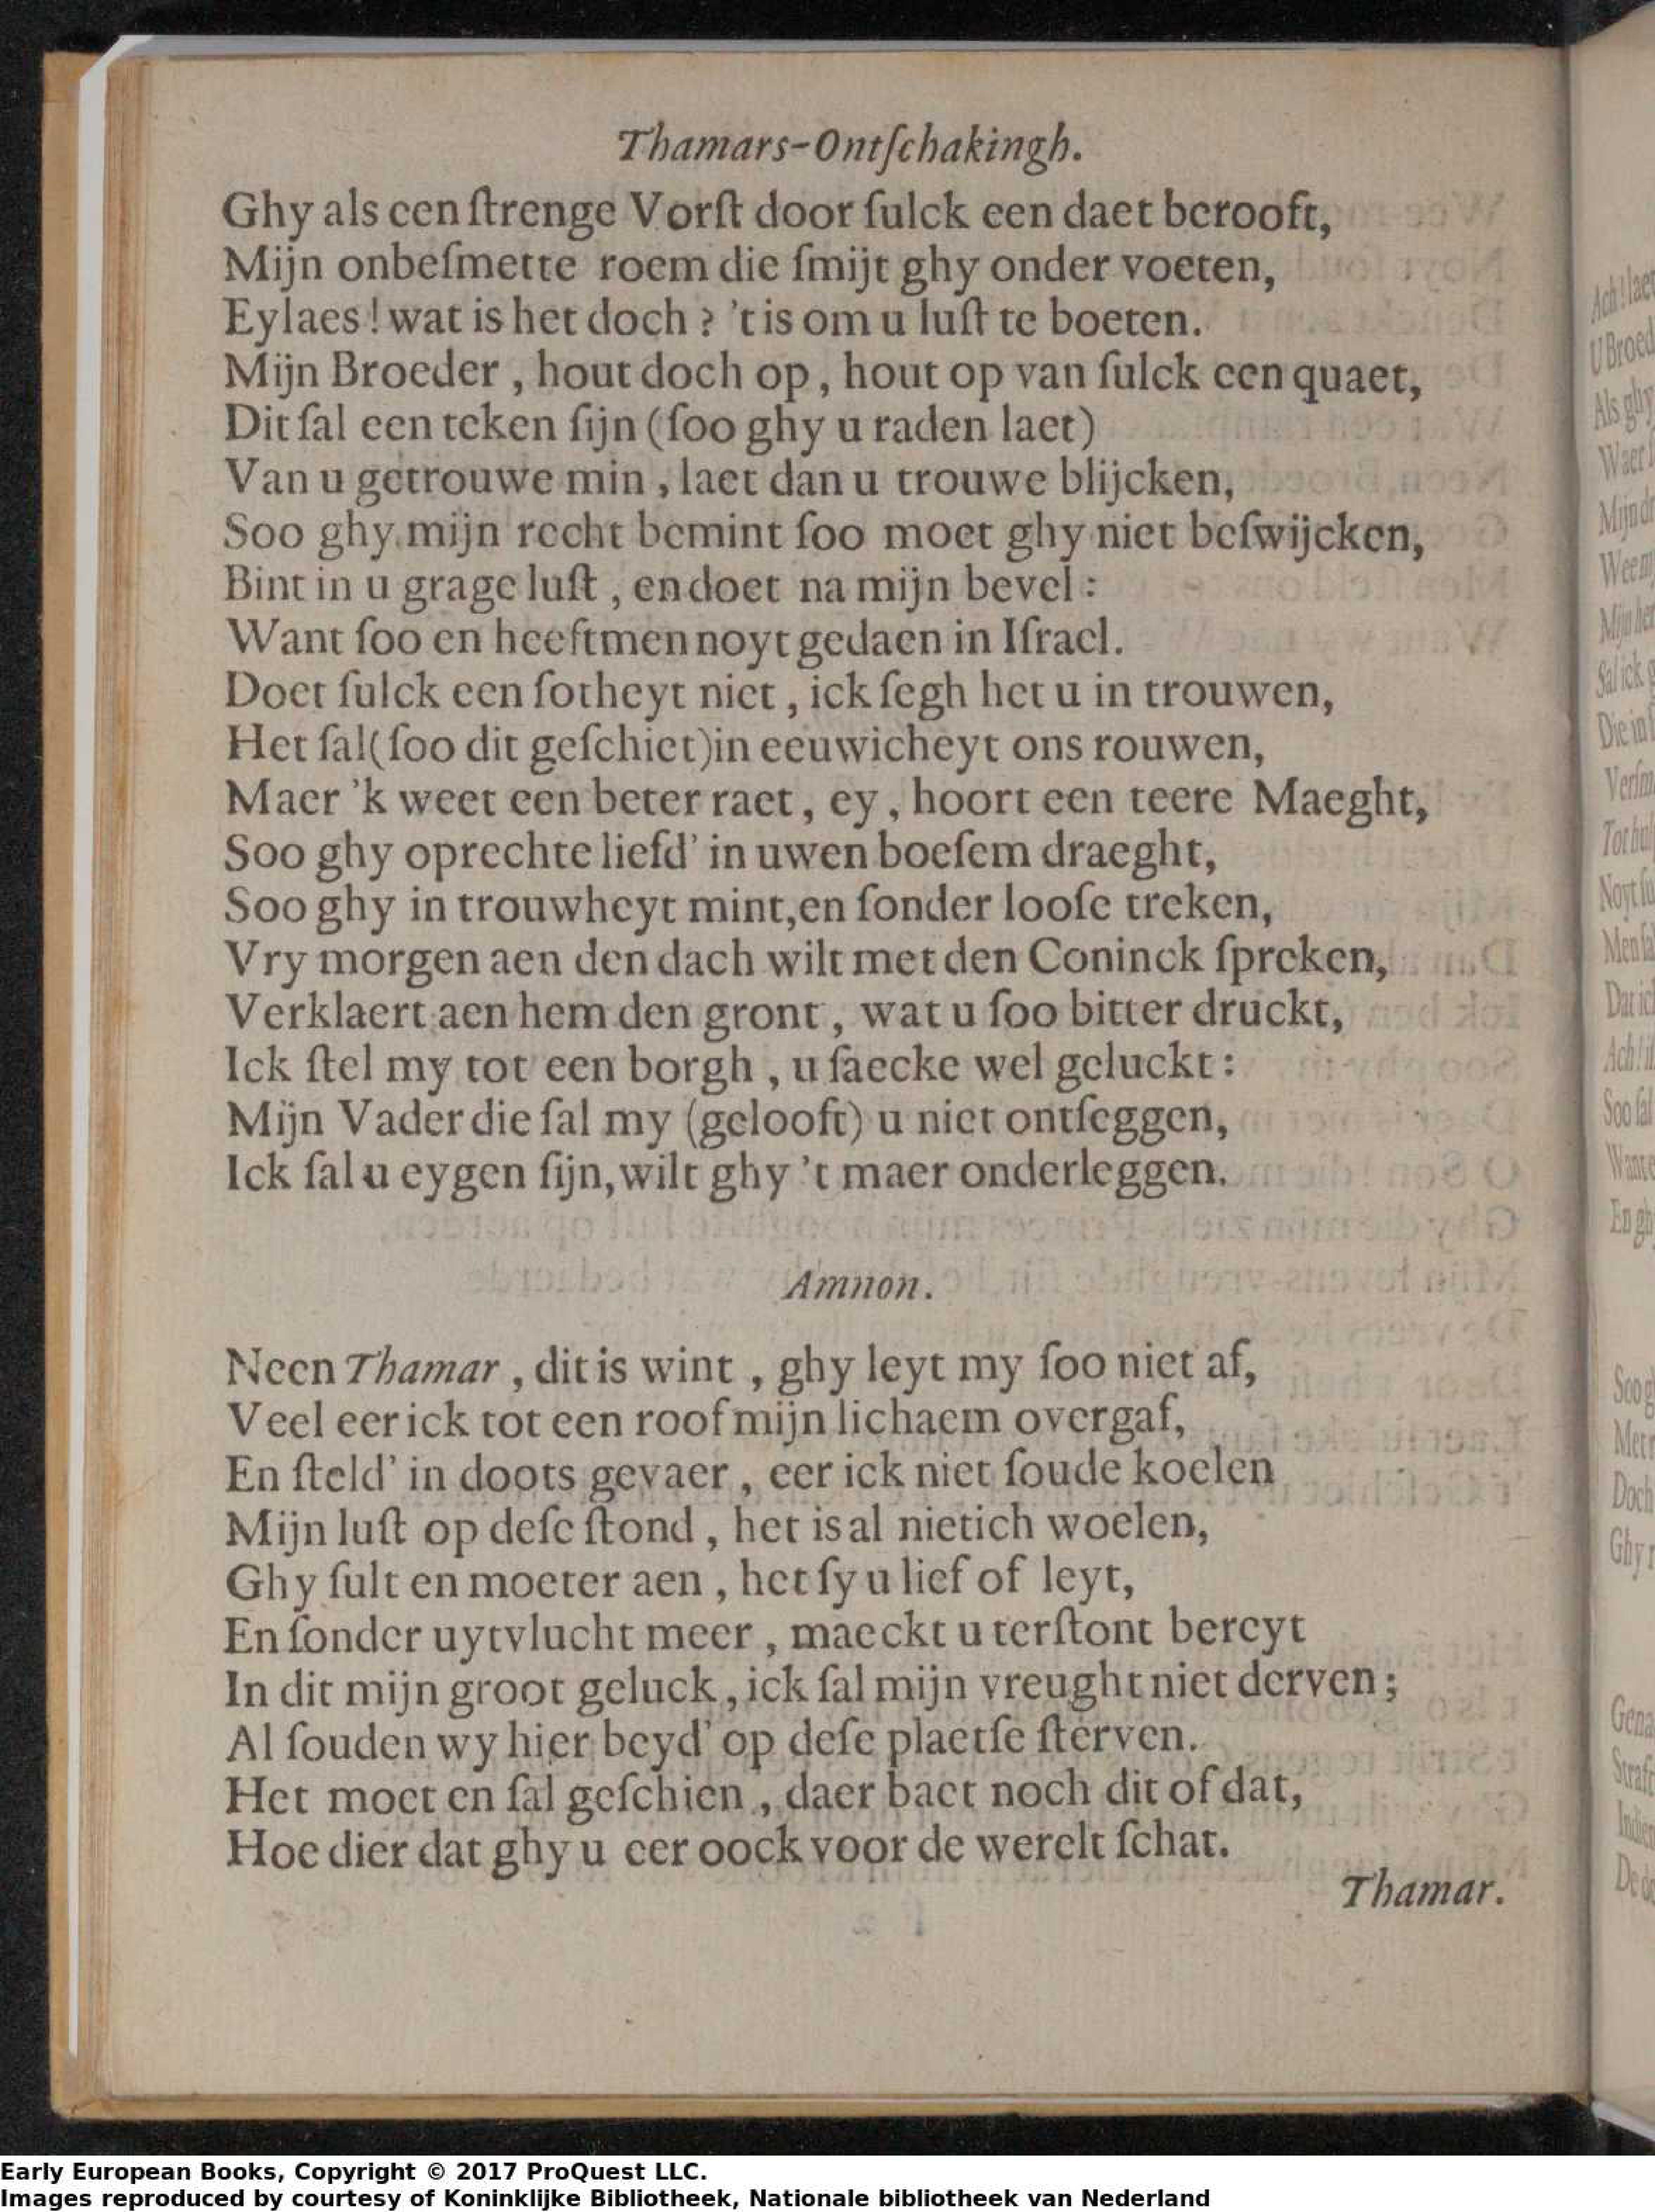 Thamars-Ontſchakingh.
Ghy als een ſtrenge Vorſt door ſulck een daet berooft,
Mijn onbeſmette roem die ſmijt ghy onder voeten,
Eylaes! wat is het doch? 't is om u luſt te boeten.
Mijn Broeder, hout doch op, hout op van ſulck een quaet,
Dit ſal een teken ſijn (ſoo ghy u raden laet)
Van u getrouwe min, laet dan u trouwe blijcken,
Soo ghy mijn recht bemint ſoo moet ghy niet beſwijcken,
Bint in u grage luſt, en doet na mijn bevel:
Want ſoo en heeftmen noyt gedaen in Iſrael.
Doet ſulck een ſotheyt niet, ick ſegh het u in trouwen,
Het ſal (ſoo dit geſchiet) in eeuwicheyt ons rouwen,
Maer 'k weet een beter raet, ey, hoort een teere Maeght,
Soo ghy oprechte liefd' in uwen boeſem draeght,
Soo ghy in trouwheyt mint, en ſonder looſe treken,
Vry morgen aen den dach wilt met den Coninck ſpreken,
Verklaert aen hem den gront, wat u ſoo bitter druckt,
Ick ſtel my tot een borgh, u ſaecke wel geluckt:
Mijn Vader die ſal my (gelooft) u niet ontſeggen,
Ick ſal u eygen ſijn, wilt ghy 't maer onderleggen.
Amnon.
Neen Thamar, dit is wint, ghy leyt my ſoo niet af,
Veel eer ick tot een roof mijn lichaem overgaf,
En ſteld' in doots gevaer, eer ick niet ſoude koelen
Mijn luſt op deſe ſtond, het is al nietich woelen,
Ghy ſult en moeter aen, het ſy u lief of leyt,
En ſonder uytvlucht meer, maeckt u terſtont bereyt
In dit mijn groot geluck, ick ſal mijn vreught niet derven;
Al ſouden wy hier beyd' op deſe plaetſe ſterven.
Het moet en ſal geſchien, daer baet noch dit of dat,
Hoe dier dat ghy u eer oock voor de werelt ſchat.
Thamar.
Early European Books, Copyright © 2017 ProQuest LLC.
Images reproduced by courtesy of Koninklijke Bibliotheek, Nationale bibliotheek van Nederland